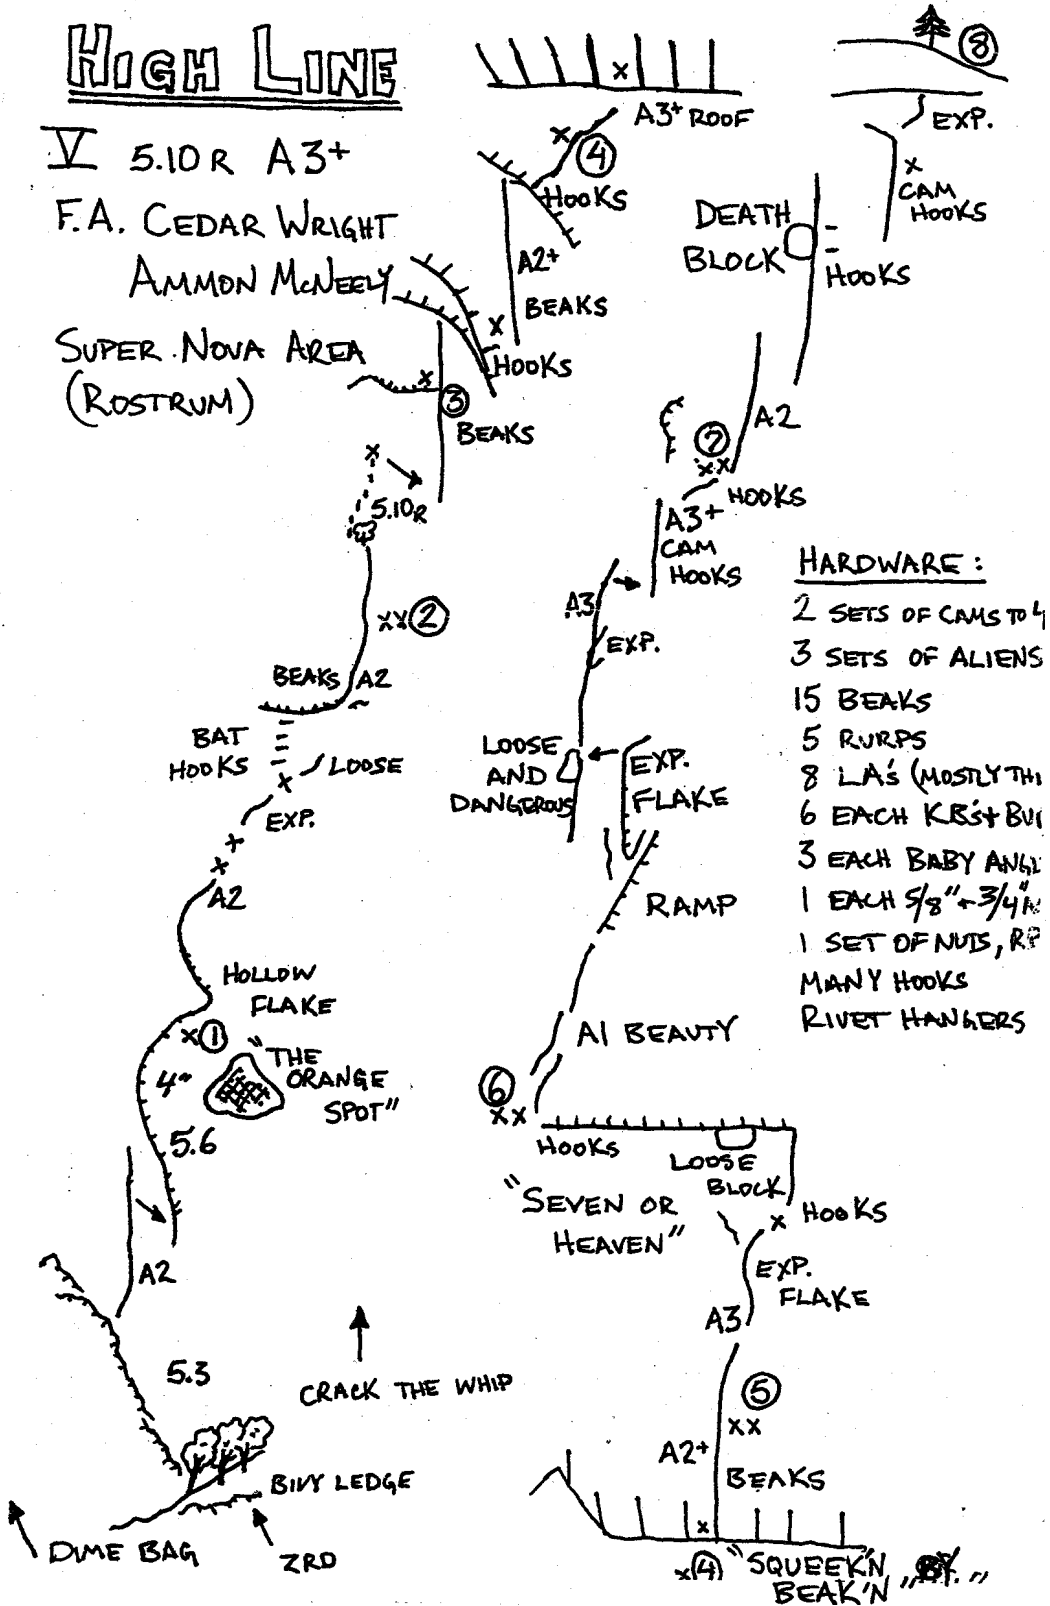 HIGH LINE
V 5.10 R A3+
F.A. CEDAR WRIGHT
AMMON McNEELY
SUPER NOVA AREA
(ROSTRUM)
A3+ ROOF
X
X
4
HOOKS
A2+
BEAKS
X
HOOKS
X
3
BEAKS
X
5.10R
XX 2
BEAKS A2
BAT
HOOKS
LOOSE
X
EXP.
X
X
A2
HOLLOW
FLAKE
X 1
4"
"THE
ORANGE
SPOT"
5.6
A2
5.3
CRACK THE WHIP
BIVY LEDGE
DIME BAG
ZRD
8
EXP.
X
CAM
HOOKS
DEATH
BLOCK
HOOKS
A2
7
XX
HOOKS
A3+
CAM
HOOKS
A3
EXP.
LOOSE
AND
DANGEROUS
EXP.
FLAKE
RAMP
A1 BEAUTY
6
XX
HOOKS
LOOSE
BLOCK
"SEVEN OR
HEAVEN"
X HOOKS
EXP.
FLAKE
A3
5
XX
A2+
BEAKS
X
X 4
"SQUEEK'N
BEAK'N BY"
HARDWARE:
2 SETS OF CAMS TO 4
3 SETS OF ALIENS
15 BEAKS
5 RURPS
8 LA's (MOSTLY THI
6 EACH KB's + BU
3 EACH BABY ANGL
1 EACH 5/8" + 3/4"
1 SET OF NUTS, RP
MANY HOOKS
RIVET HANGERS